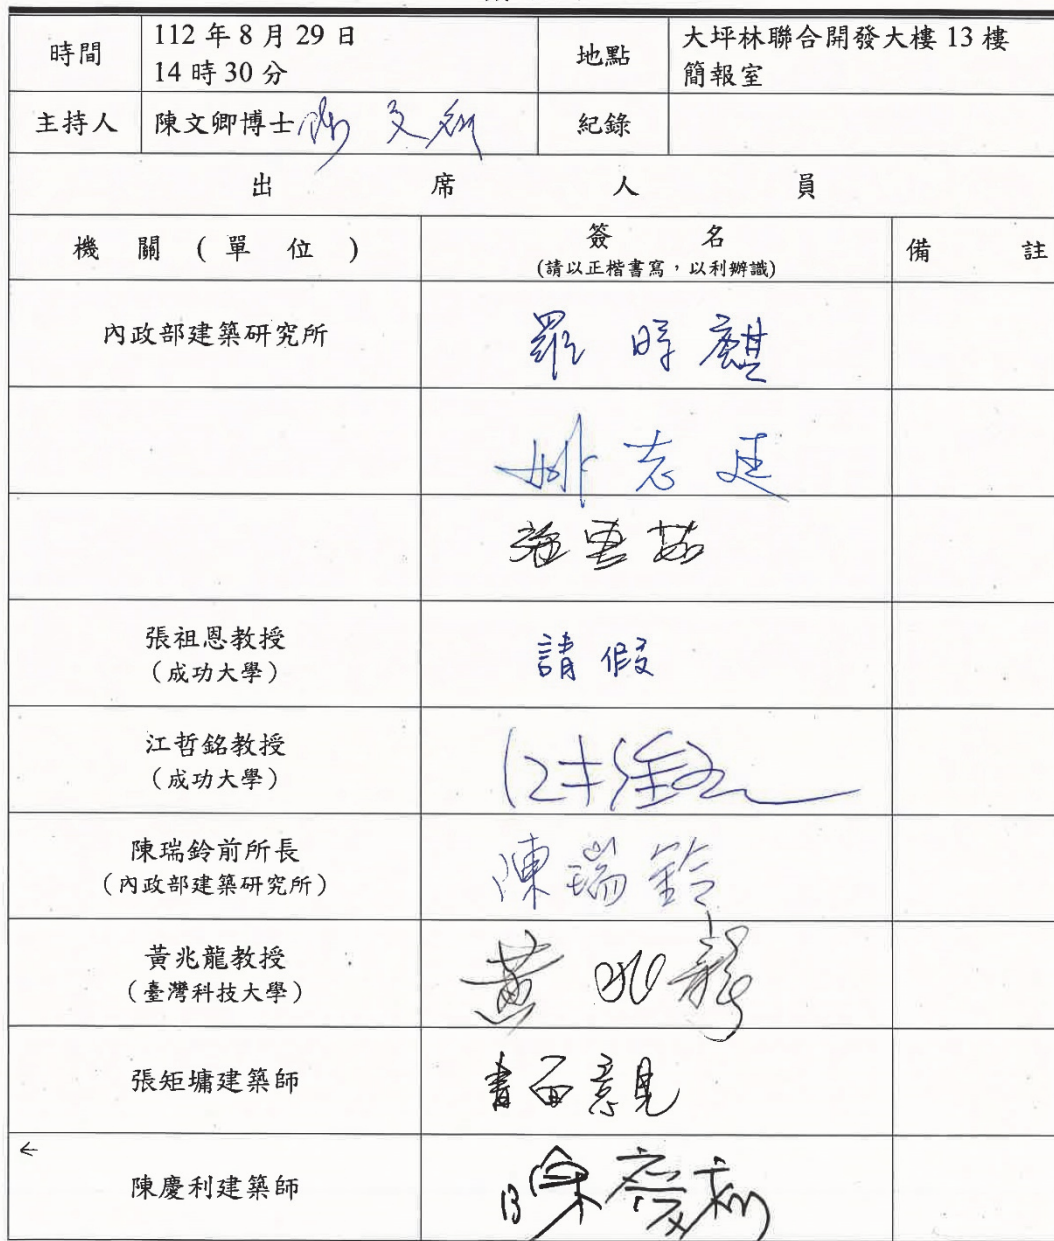 時間
112 年 8 月 29 日
14 時 30 分
地點
大坪林聯合開發大樓 13 樓
簡報室
主持人
陳文卿博士 陳文卿
紀錄
出席人員
機關(單位)
簽名
(請以正楷書寫，以利辨識)
備註
內政部建築研究所
羅時麒
姚志廷
張祖恩教授
（成功大學）
請假
江哲銘教授
（成功大學）
陳瑞鈴前所長
（內政部建築研究所）
陳瑞鈴
黃兆龍教授
（臺灣科技大學）
黃兆龍
張矩墉建築師
書面意見
←
陳慶利建築師
陳慶利